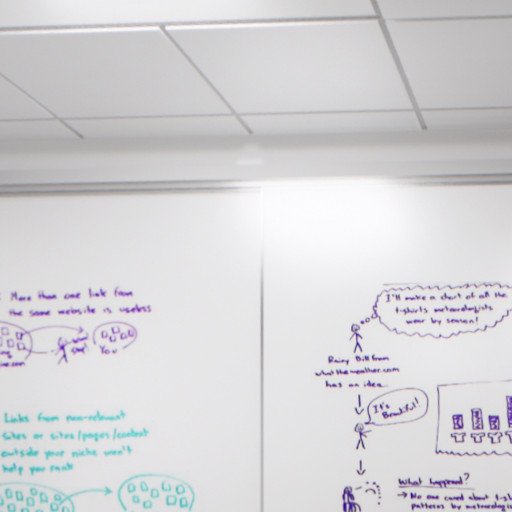 More than one link from
the same website is useless
You
Links from non-relevant
sites or sites/pages/content
outside your niche won't
help you rank
I'll make a chart of all the
t-shirts meteorologists
wear by season!
Rainy Bill from
whattheweather.com
has an idea.
It's
Beautiful!
What happened?
→ No one cared about t-sh
patterns by meteorologi